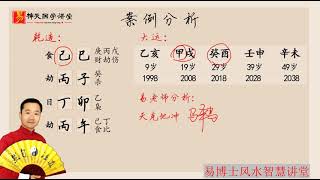 博天国学讲堂
案例分析
乾造：
大运：
食 己 巳 庚丙戊 财劫伤
劫 丙 子 癸 杀
日 丁 卯 乙 枭
劫 丙 午 己丁 食比
乙亥 甲戌 癸酉 壬申 辛未
9岁 19岁 29岁 39岁 49岁
1998 2008 2018 2028 2038
易老师分析：
天克地冲
易博士风水智慧讲堂